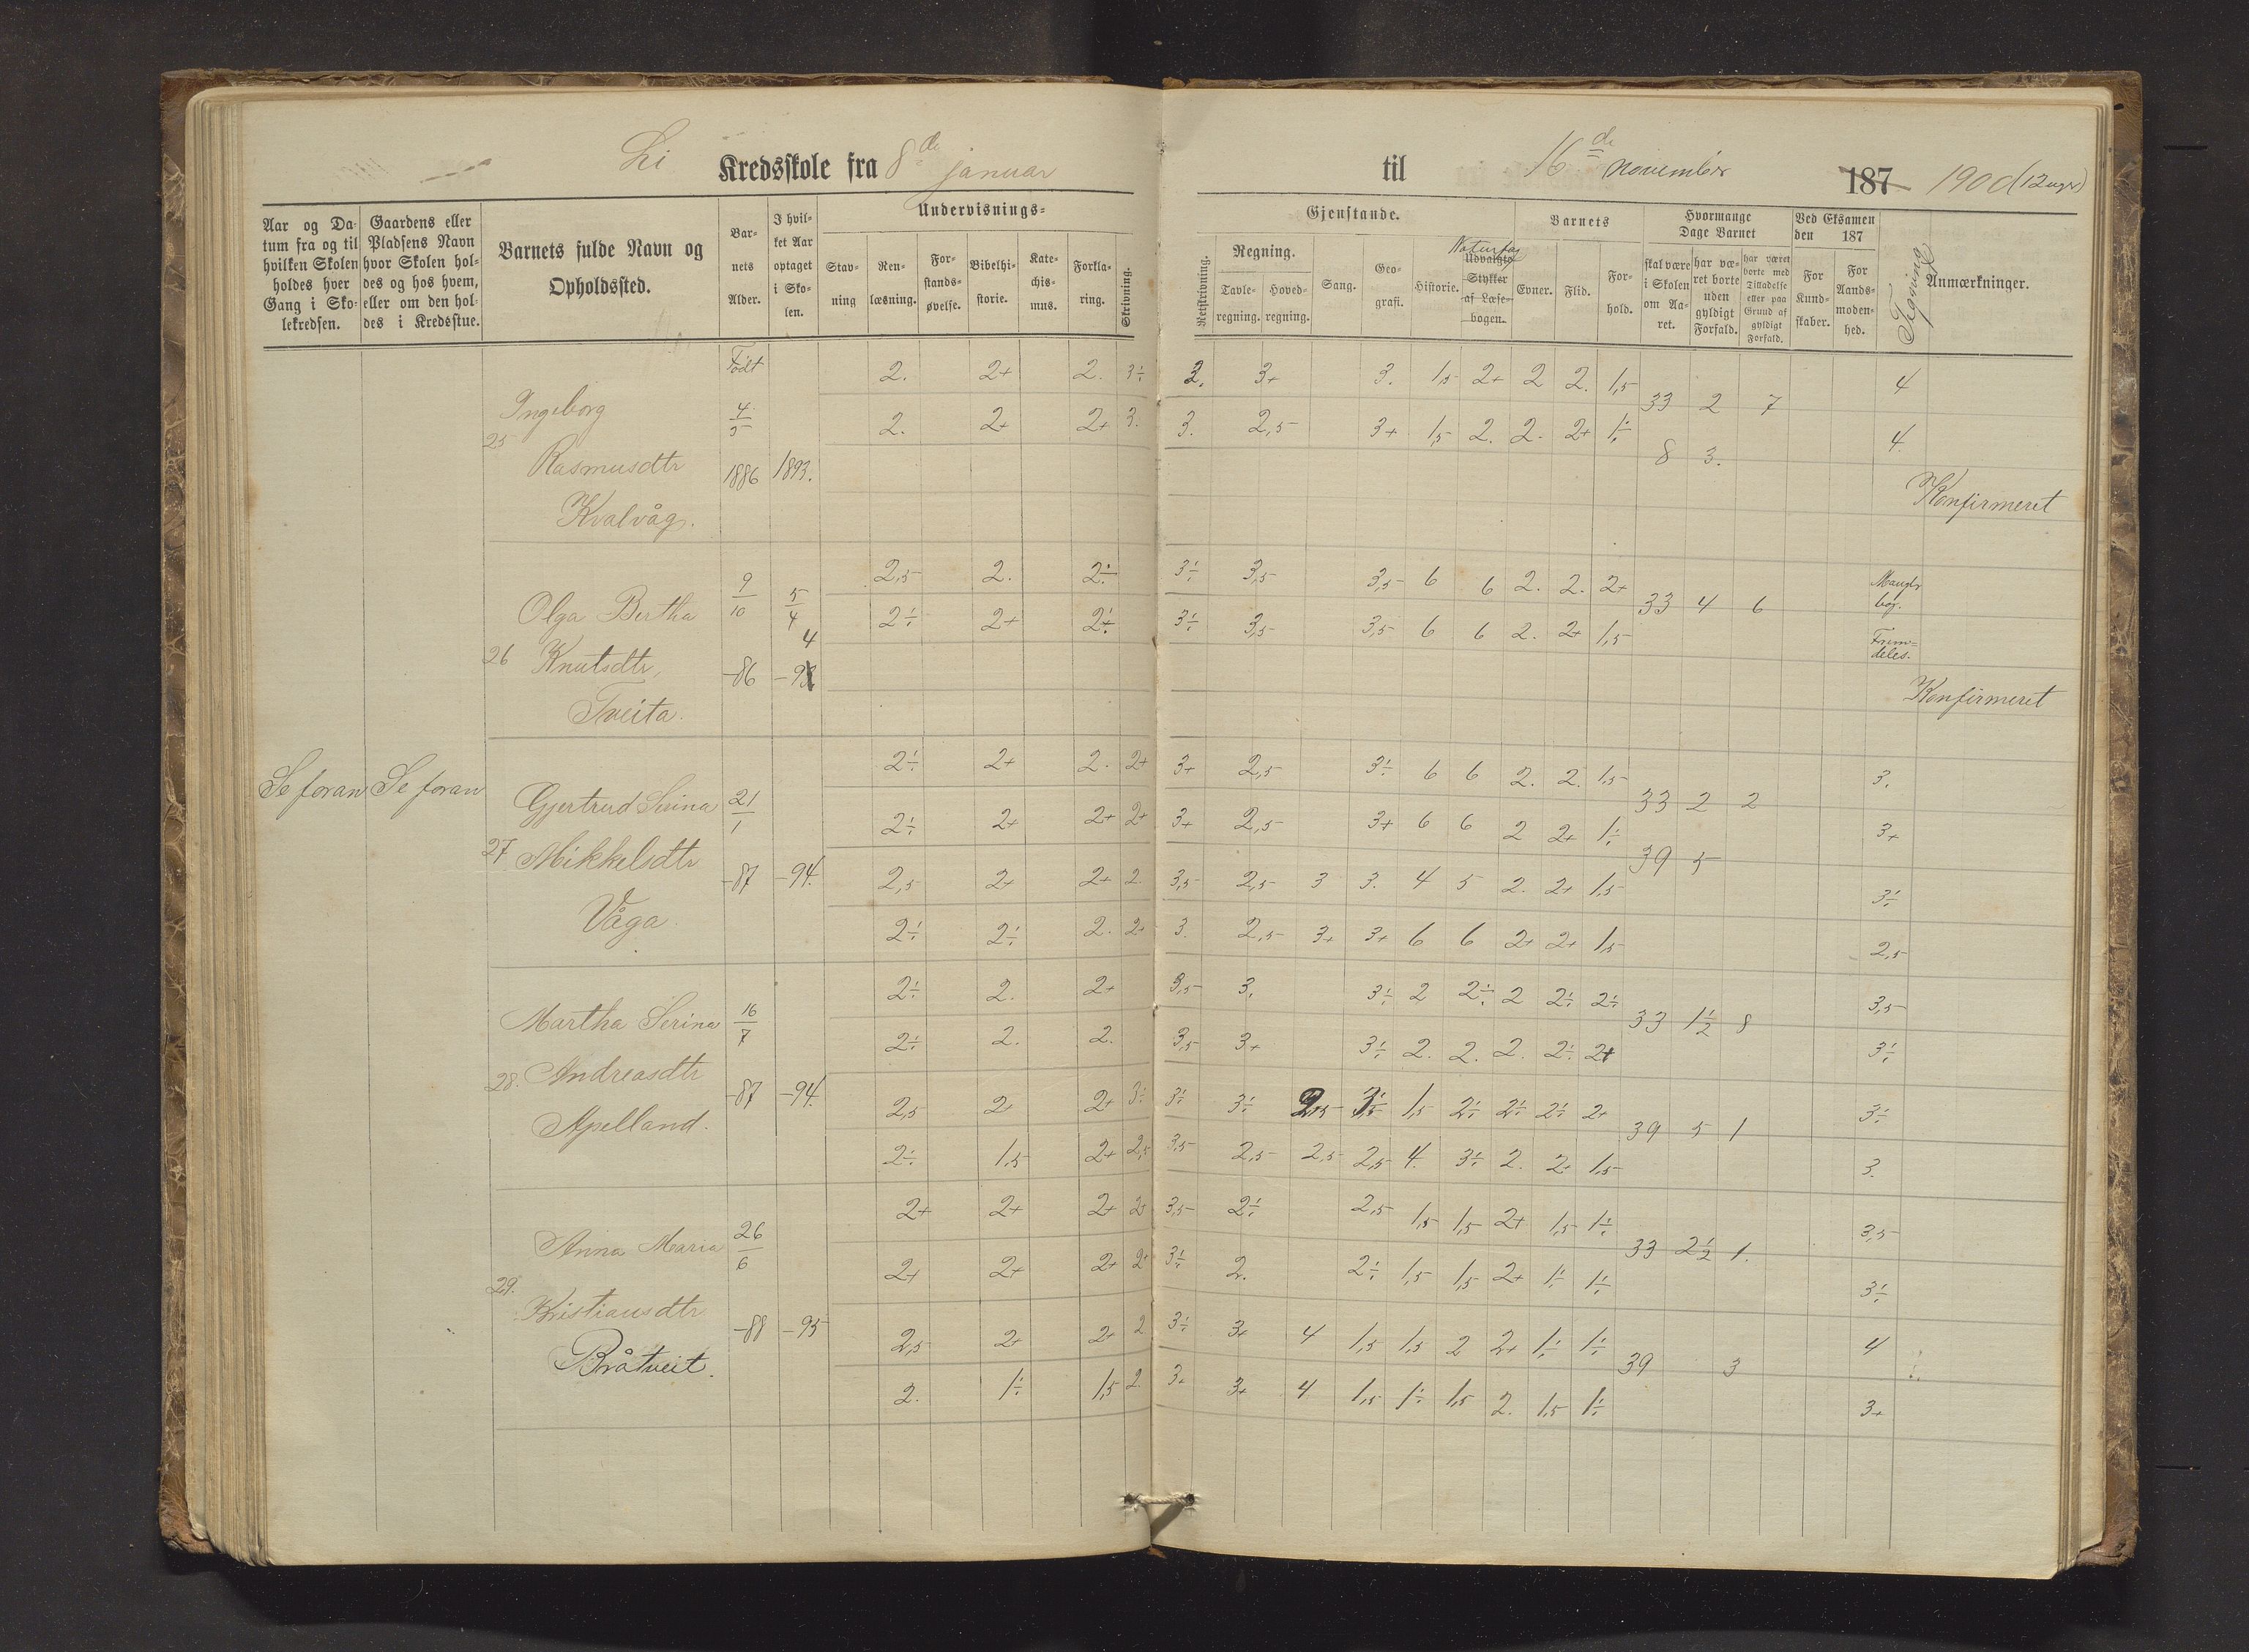 Li Kredsskole fra 8de januar til 16de november 187 1900 (12 uger)
Aar og Da-
tum fra og til
hvilken Skolen
holdes hver
Gang i Sko-
lekredsen.
Gaardens eller
Pladsens Navn
hvor Skolen hol-
des og hos hvem,
eller om den hol-
des i Kredsstue.
Barnets fulde Navn og
Opholdssted.
Bar-
nets
Alder.
I hvil-
ket Aar
optaget
i Sko-
len.
Undervisnings-
Stav-
ning
Ren-
læsning.
For-
stands-
øvelse.
Bibelhi-
storie.
Kate-
chis-
mus.
Forkla-
ring.
Skrivning.
Gjenstande.
Retskrivning.
Regning.
Tavle-
regning.
Hoved-
regning.
Sang.
Geo-
grafi.
Historie.
Naturfag
Udvalgte
Stykker
af Læse-
bogen.
Barnets
Evner.
Flid.
For-
hold.
Hvormange
Dage Barnet
skal være
i Skolen
om Aa-
ret.
har væ-
ret borte
uden
gyldigt
Forfald.
har været
borte med
Tilladelse
eller paa
Grund af
gyldigt
Forfald.
Ved Eksamen
den 187
For
Kund-
skaber.
For
Aands-
moden-
hed.
Tegning
Anmærkninger.
Se foran Se foran
25
Ingeborg
Rasmusdtr
Kvalvåg.
Født
4/5
1886 1893.
2. 2+ 2. 3÷ 3. 3+ 3. 1,5 2+ 2 2. 1,5 4
33 2 7
2. 2+ 2+ 3. 3. 2,5 3+ 1,5 2. 2. 2+ 1÷ 4.
8 3.
Konfirmeret
26
Olga Bertha
Knutsdtr,
Tveita.
9/10 5/4
-86 -94
2,5 2. 2÷ 3÷ 3,5 3,5 6 6 2. 2. 2+ Mangler
bog.
33 4 6
2÷ 2+ 2÷ 3÷ 3,5 3,5 6 6 2. 2+ 1,5 Frem=
deles.
Konfirmeret
27
Gjertrud Serina
Mikkelsdtr
Våga.
21/1
-87 -94.
2÷ 2+ 2. 2+ 3+ 2,5 3÷ 6 6 2. 2. 1,5 3.
33 2 2
2÷ 2+ 2+ 2+ 3+ 2,5 3+ 6 6 2 2+ 1÷ 3+
39 5
2,5 2+ 2+ 2. 3,5 2,5 3 3. 4 5 2. 2+ 1,5 3÷
2÷ 2÷ 2. 2+ 3. 2,5 3+ 3+ 6 6 2+ 2+ 1,5 2,5
28.
Martha Serina
Andreasdtr
Apelland.
16/7
-87 -94.
2÷ 2. 2+ 3,5 3. 3÷ 2 2÷ 2 2÷ 2÷ 3,5
33 1½ 8
2÷ 2. 2. 3,5 3+ 3÷ 2. 2. 2. 2÷ 2+ 3÷
2,5 2+ 2+ 3÷ 3÷ 3÷ 2,5 3÷ 1,5 2÷ 2÷ 2÷ 2+ 3÷
39 5 1
2÷ 1,5 2+ 2,5 3,5 2,5 2,5 2,5 4. 3÷ 2. 2+ 1,5 3.
29.
Anna Maria
Kristiansdtr
Bråtveit.
26/6
-88 -95
2+ 2+ 2+ 2+ 3,5 2÷ 2,5 1,5 1,5 2+ 1,5 1÷ 3,5
33 2½ 1.
2+ 2+ 2+ 2+ 3÷ 2. 2÷ 1,5 1,5 2+ 1÷ 1÷ 3÷
2,5 2+ 2+ 2 3÷ 3+ 4 1,5 1,5 2 2+ 1÷ 1÷ 4
39 3
2. 1÷ 1,5 2. 3+ 3+ 4 1,5 1÷ 1,5 2. 1,5 1÷ 3+